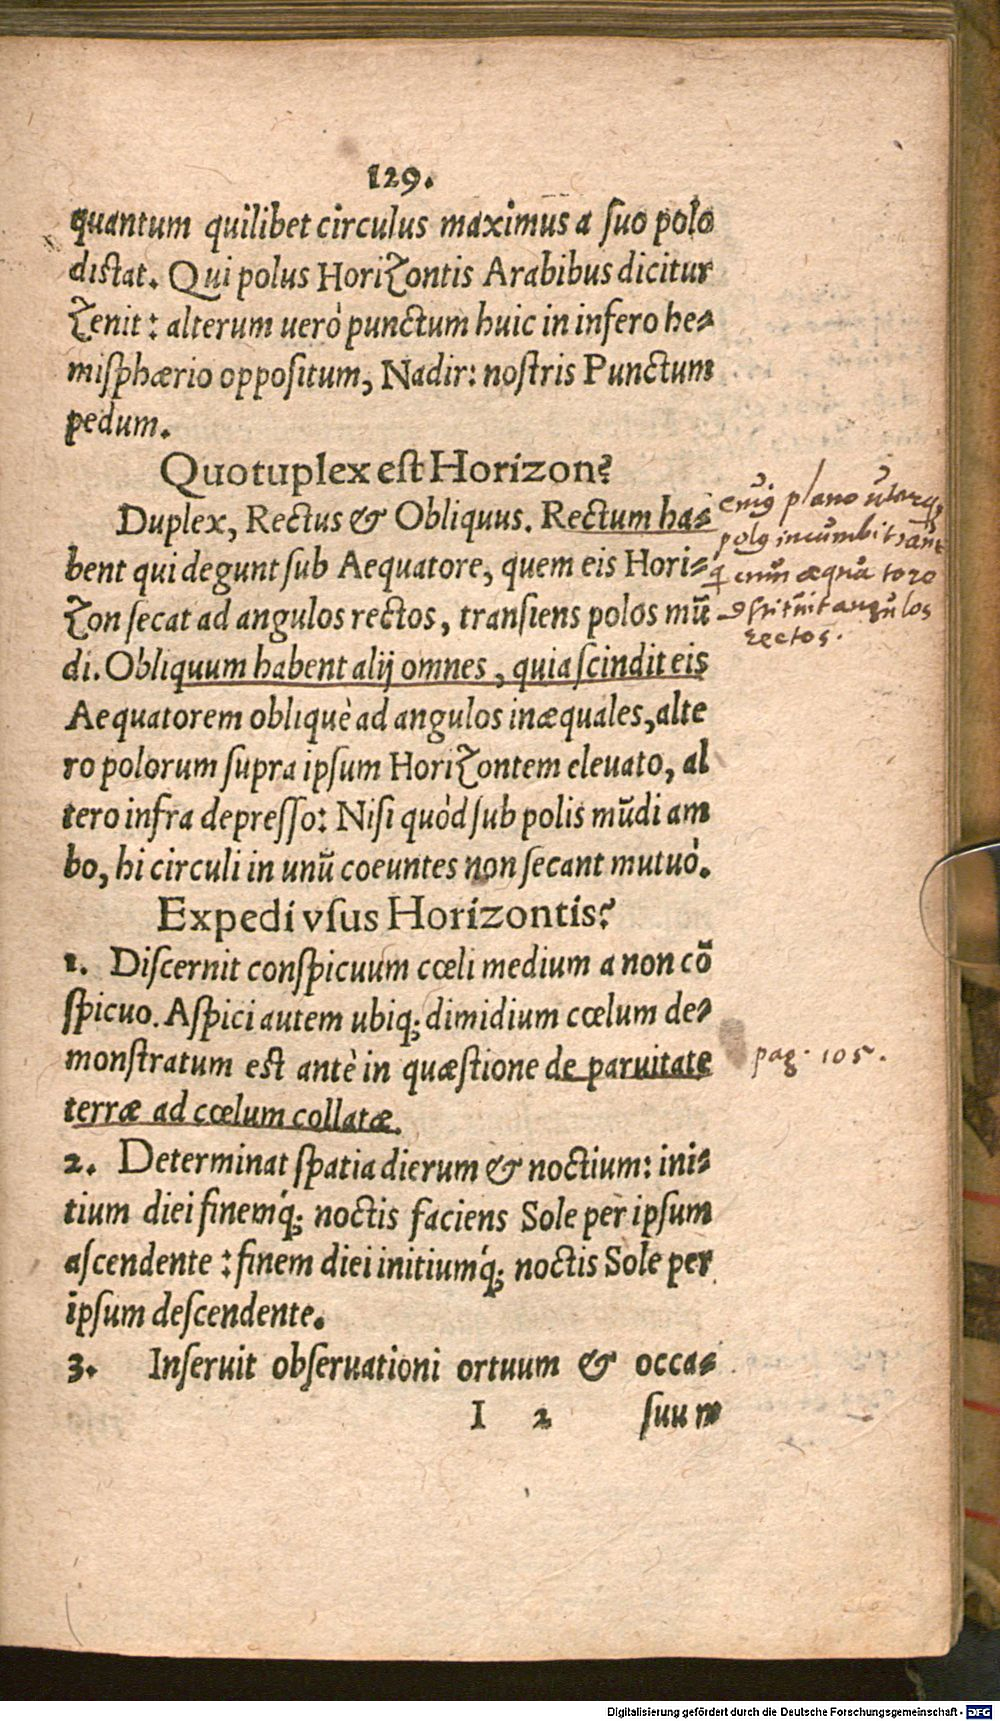 129.
quantum quilibet circulus maximus a ſuo polo
distat. Qui polus Horizontis Arabibus dicitur
Zenit: alterum uerò punctum huic in infero he-
miſphærio oppoſitum, Nadir: noſtris Punctum
pedum.
Quotuplex eſt Horizon?
Duplex, Rectus & Obliquus. Rectum ha-
bent qui degunt ſub Aequatore, quem eis Hori-
zon ſecat ad angulos rectos, tranſiens polos mū
di. Obliquum habent alij omnes, quia ſcindit eis
Aequatorem obliquè ad angulos inæquales, alte
ro polorum ſupra ipſum Horizontem eleuato, al
tero infra depreſſo: Niſi quòd ſub polis mūdi am
bo, hi circuli in unū coeuntes non ſecant mutuò.
cuiꝰ plano uterq;
polꝰ incumbit
cum æqua tore
angulos
rectos.
Expedi vſus Horizontis?
1. Diſcernit conſpicuum cœli medium a non cō
ſpicuo. Aſpici autem ubiq; dimidium cœlum de-
monſtratum eſt antè in quæſtione de paruitate
terræ ad cœlum collatæ.
pag. 105.
2. Determinat ſpatia dierum & noctium: ini-
tium diei finemq́; noctis faciens Sole per ipſum
aſcendente: finem diei initiumq́; noctis Sole per
ipſum deſcendente.
3. Inſeruit obſeruationi ortuum & occa-
I 2 ſuum
Digitalisierung gefördert durch die Deutsche Forschungsgemeinschaft - DFG